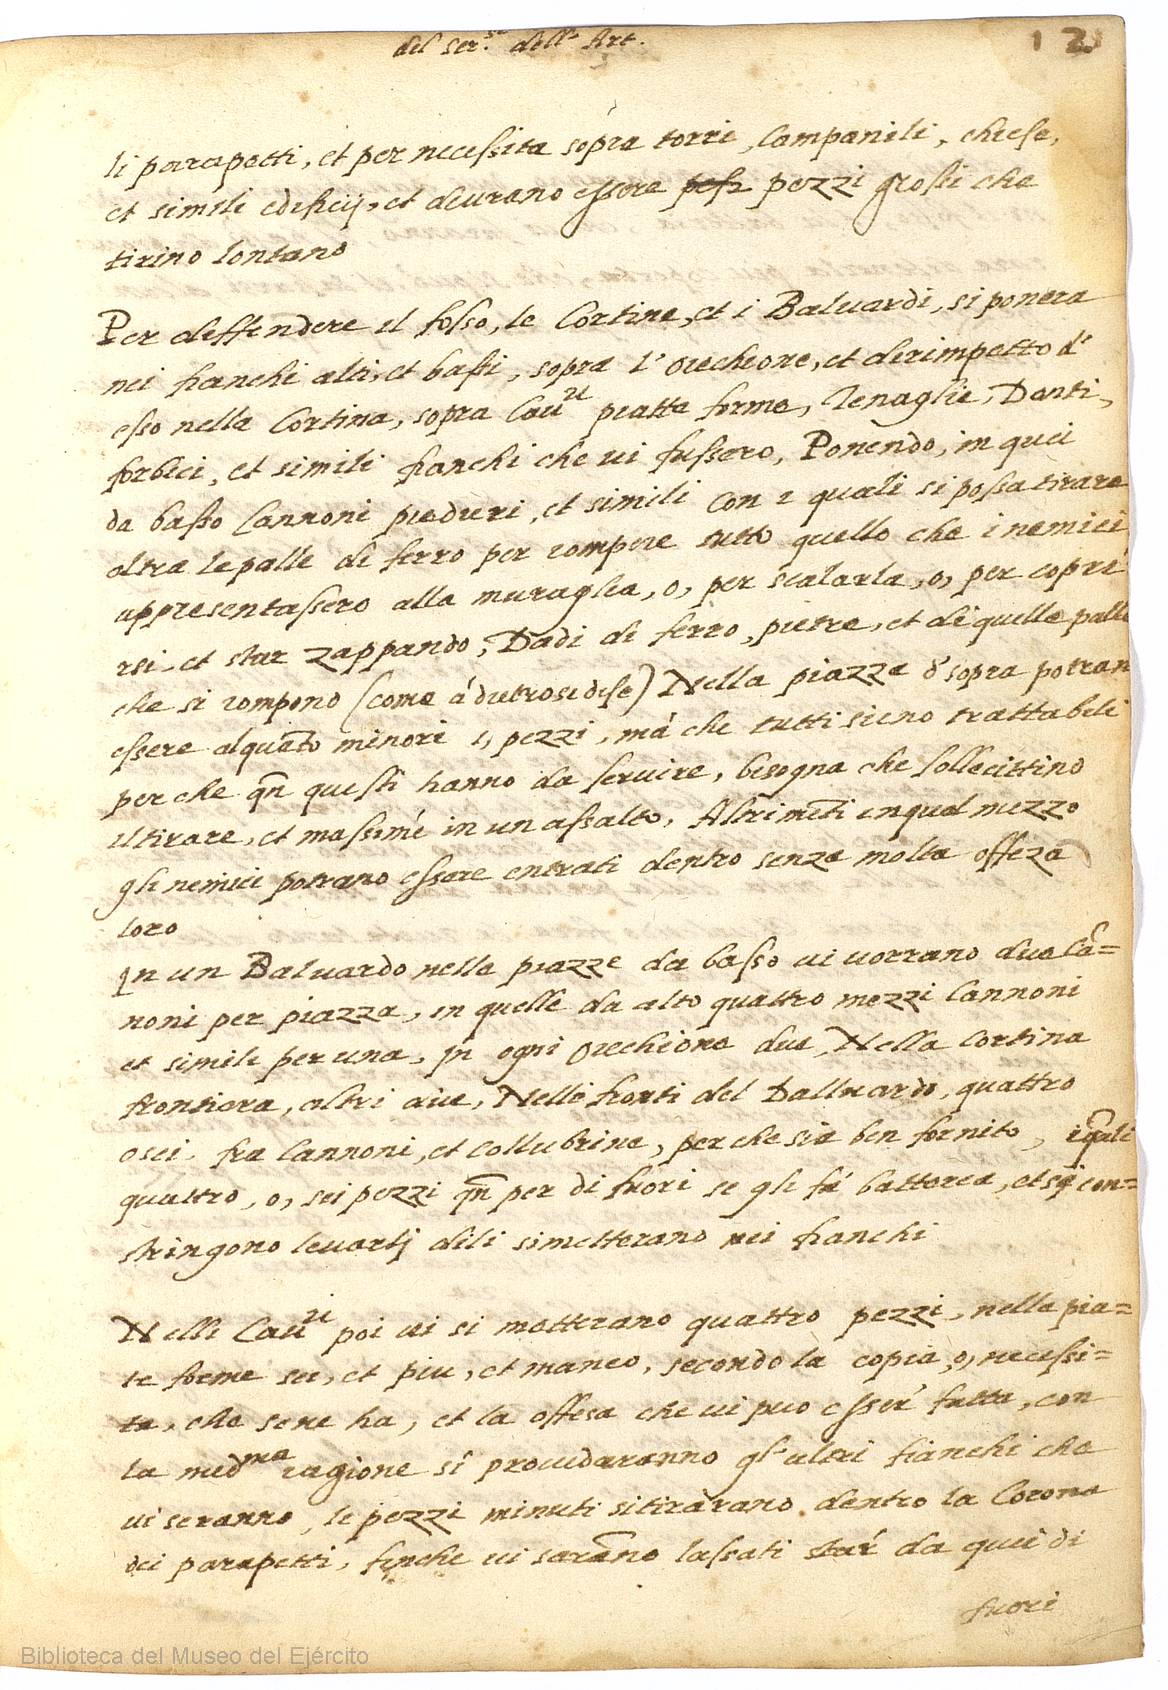 del ser.º dell' Art.
12
li parapetti, et per necessita sopra torri, Campanili, chiese,
et simili edificij, et deurano essere pezzi grossi che
tirino lontano
Per deffendere il fosso, le Cortine, et i Baluardi, si ponera
nei fianchi alti, et bassi, sopra l' orechione, et dirimpetto d'
esso nella Cortina, sopra Cau.ri piatte forme, Tenaglie, Denti,
forbici, et simili fianchi che ui fussero, Ponendo, in quei
da basso Cannoni pedreri, et simili con i quali si possa tirare
oltra le palle di ferro per rompere tutto quello che i nemici
appresentassero alla muraglia, o, per scalarla, o, per copri
rsi, et star zappando, Dadi di ferro, pietre, et di quelle palle
che si rompono (come á dietro se disse) Nella piazza d' sopra potran
essere alquanto minori i, pezzi, má che tutti sieno trattabeli
per che qñ questi hanno da seruire, bisogna che sollecittino
il tirare, et massimé in un assalto, Altrimēti in quel mezzo
gli nemici potrano essere entrati dentro senza molta offeza
loro
In un Baluardo nelle piazze da basso ui uorrano due Cā=
noni per piazza, in quelle da alto quattro mezzi Cannoni
et simili per una, in ogni orechione due, Nella Cortina
frontiera, altri due, Nelle fronti del Balluardo, quattro
o sei fra Cannoni, et Collubrine, per che sia ben fornito, i quali
quattro, o, sei pezzi qñ per di fuori se gli fá batterea, et si con=
stringono leuartj dili si metterano nei fianchi
Nelli Cau.ri poi ui si metterano quattro pezzi, nelle pia=
te forme sei, et piu, et manco, secondo la copia, o, necessi=
ta, che se ne ha, et la offesa che ui puo esser' fatta, con
la med.ma ragione si prouedaranno gl' altri fianchi che
ui seranno, le pezzi minuti si tirarano dentro la Corona
dei parapetti, finche ui sarano lassati star' da quei di
fuori
Biblioteca del Museo del Ejército